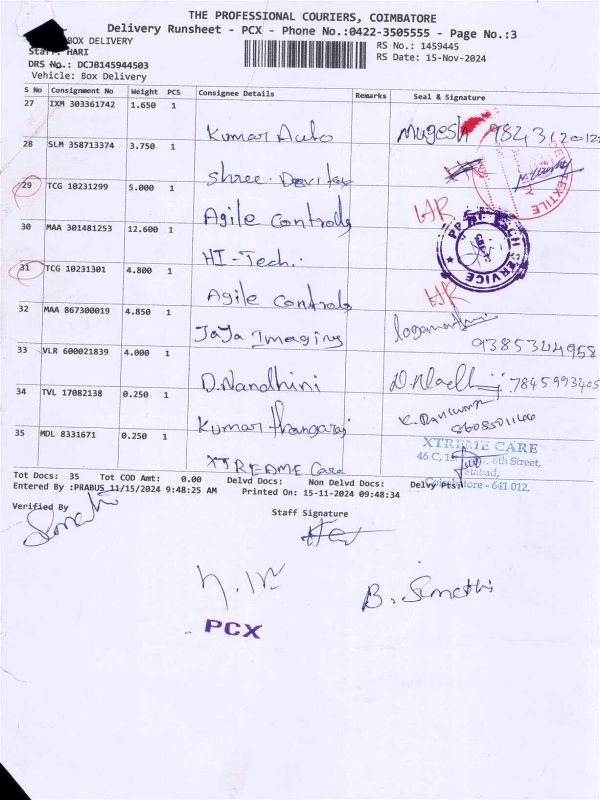 THE PROFESSIONAL COURIERS, COIMBATORE
Delivery Runsheet - PCX - Phone No.:0422-3505555 - Page No.:3
BOX DELIVERY
RS No.: 1459445
Staff: HARI
RS Date: 15-Nov-2024
DRS No.: DCJB145944503
Vehicle: Box Delivery
S No Consignment No Weight PCS Consignee Details Remarks Seal & Signature
27 IXM 303361742 1.650 1
Kumar Auto Mugesh
28 SLM 358713374 3.750 1
Shree. Devi
TEXTILE
29 TCG 10231299 5.000 1
Agile Controls
30 MAA 301481253 12.600 1
HI-Tech.
PP HI TECH SERVICE
CBE
31 TCG 10231301 4.800 1
Agile Controls
32 MAA 867300019 4.850 1
JaJa Imaging
9385344958
33 VLR 600021839 4.000 1
D.Nandhini
7845993405
34 TVL 17082138 0.250 1
Kumar thangaraj
35 MDL 8331671 0.250 1
XTREAME Care
XTREME CARE
46 C, 6th Street,
Coimbatore - 641 012.
Tot Docs: 35 Tot COD Amt: 0.00 Delvd Docs: Non Delvd Docs: Delvy Pts:
Entered By :PRABUS 11/15/2024 9:48:25 AM Printed On: 15-11-2024 09:48:34
Verified By
Staff Signature
B. Sumathi
PCX